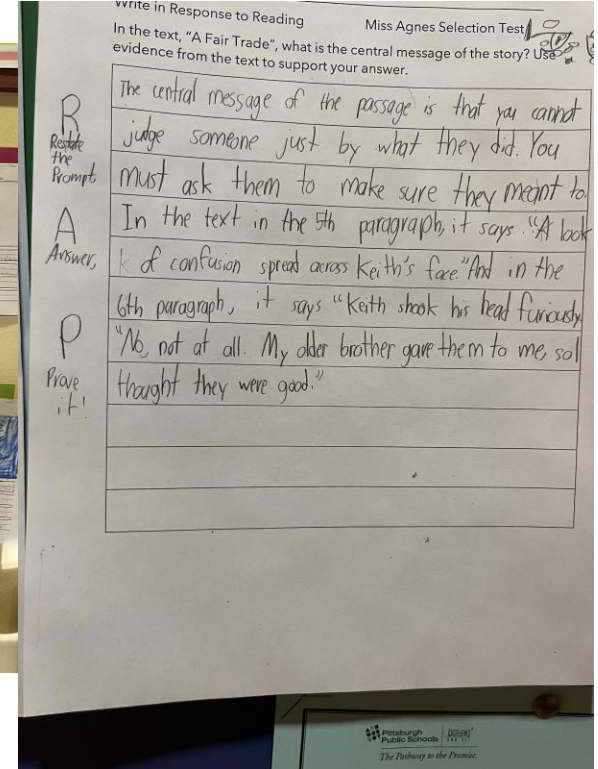 Write in Response to Reading
Miss Agnes Selection Test
In the text, "A Fair Trade", what is the central message of the story? Use
evidence from the text to support your answer.
R
Restate
the
Prompt
A
Answer,
P
Prove
it!
The central message of the passage is that you cannot
judge someone just by what they did. You
must ask them to make sure they meant to.
In the text in the 5th paragraph, it says "A look
k of confusion spread across Keith's face" And in the
6th paragraph, it says "Keith shook his head furiously
"No, not at all. My older brother gave them to me, so I
thought they were good."
Pittsburgh
Public Schools
The Pathway to the Promise.